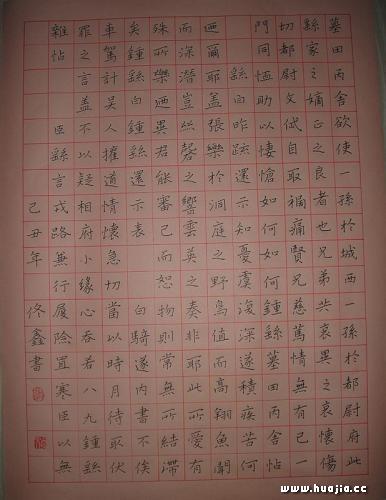 墓田丙舍欲使一孫於城西一孫於都尉府此
繇家之嫡正之良者也兄弟共哀異之哀懷傷
切都尉文岱自取禍痛賢兄慈篤情無有已一
門同恤助以悽愴如何如何鍾繇墓田丙舍帖
繇白昨疏還示知憂虞復深遂積疾苦何
迺爾耶蓋張樂於洞庭之野鳥值而高翔魚聞
而深潛豈絲磬之響雲英之奏非耶此所愛有
殊所樂迺異君能審己而恕物則常無所結滯
矣鍾繇白鍾繇還示表白騎遂內書不俟
車駕計吳人權道情懷急切當以時月待取伏
罪之言蓋不以疑相府小緣心吝若八九鍾繇
雜帖臣繇言戎路兼行履險冒寒臣以無
己丑年佟鑫書
www.huajia.cc